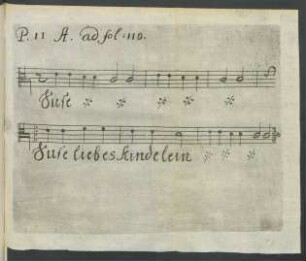 P. 11 A. ad sol. no.
Suse
Suse liebes kindelein